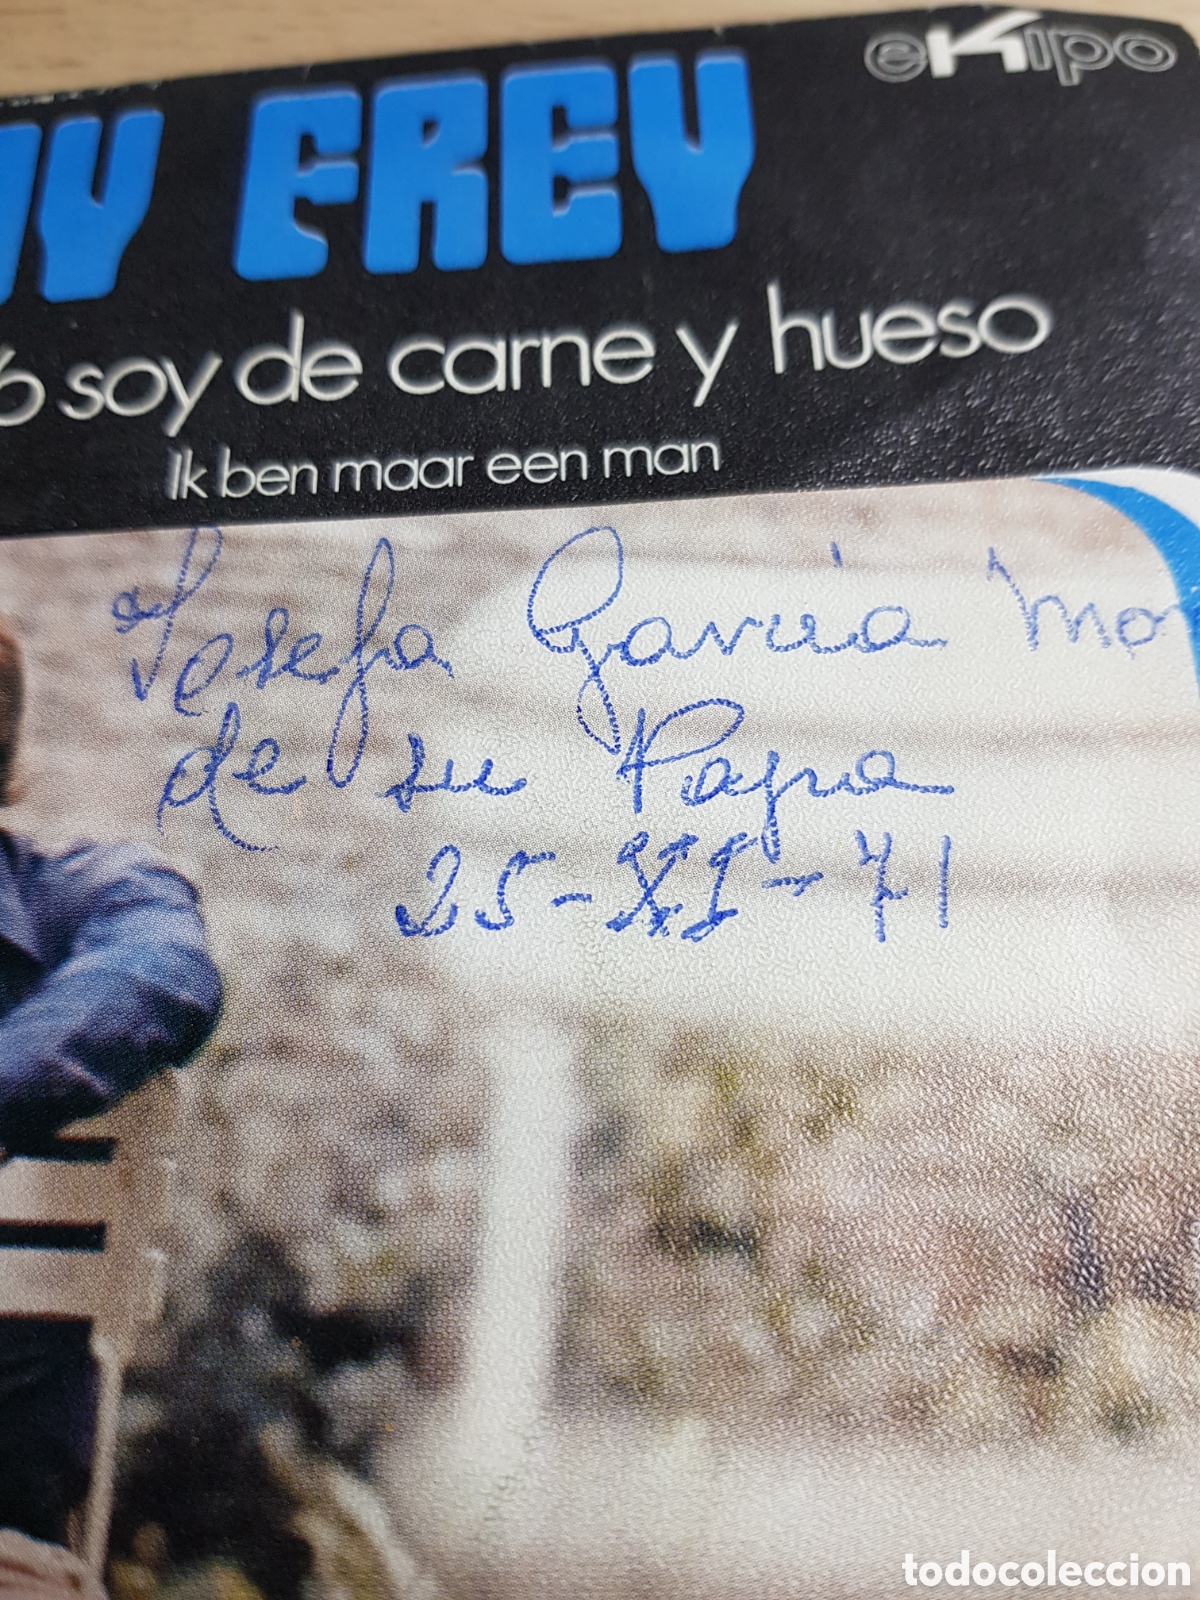 eKipo
FREY
soy de carne y hueso
Ik ben maar een man
Josefa García Mo
de su Papa
25-XII-71
todocoleccion